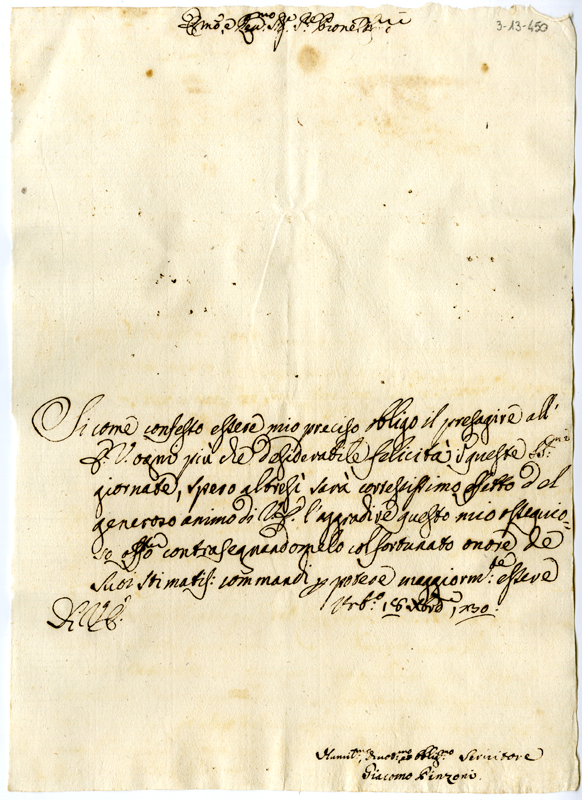 3-13-450
Sicome confesso essere mio preciso obligo il presagire all'
S. V. ogni più che desiderabile felicità queste
giornate, spero altresì sarà cortesissimo effetto del
generoso animo di V. S. l'aggradire questo mio ossequio-
so contrasegnandomelo col fortunato onore de
suoi stimatis: commandi p potere maggiorm.te essere
Di V. S.
Urb.o 18 Xbre 1730.
Humil.mo Devot.mo Obblig.mo Servitore
Giacomo Pinzoni.